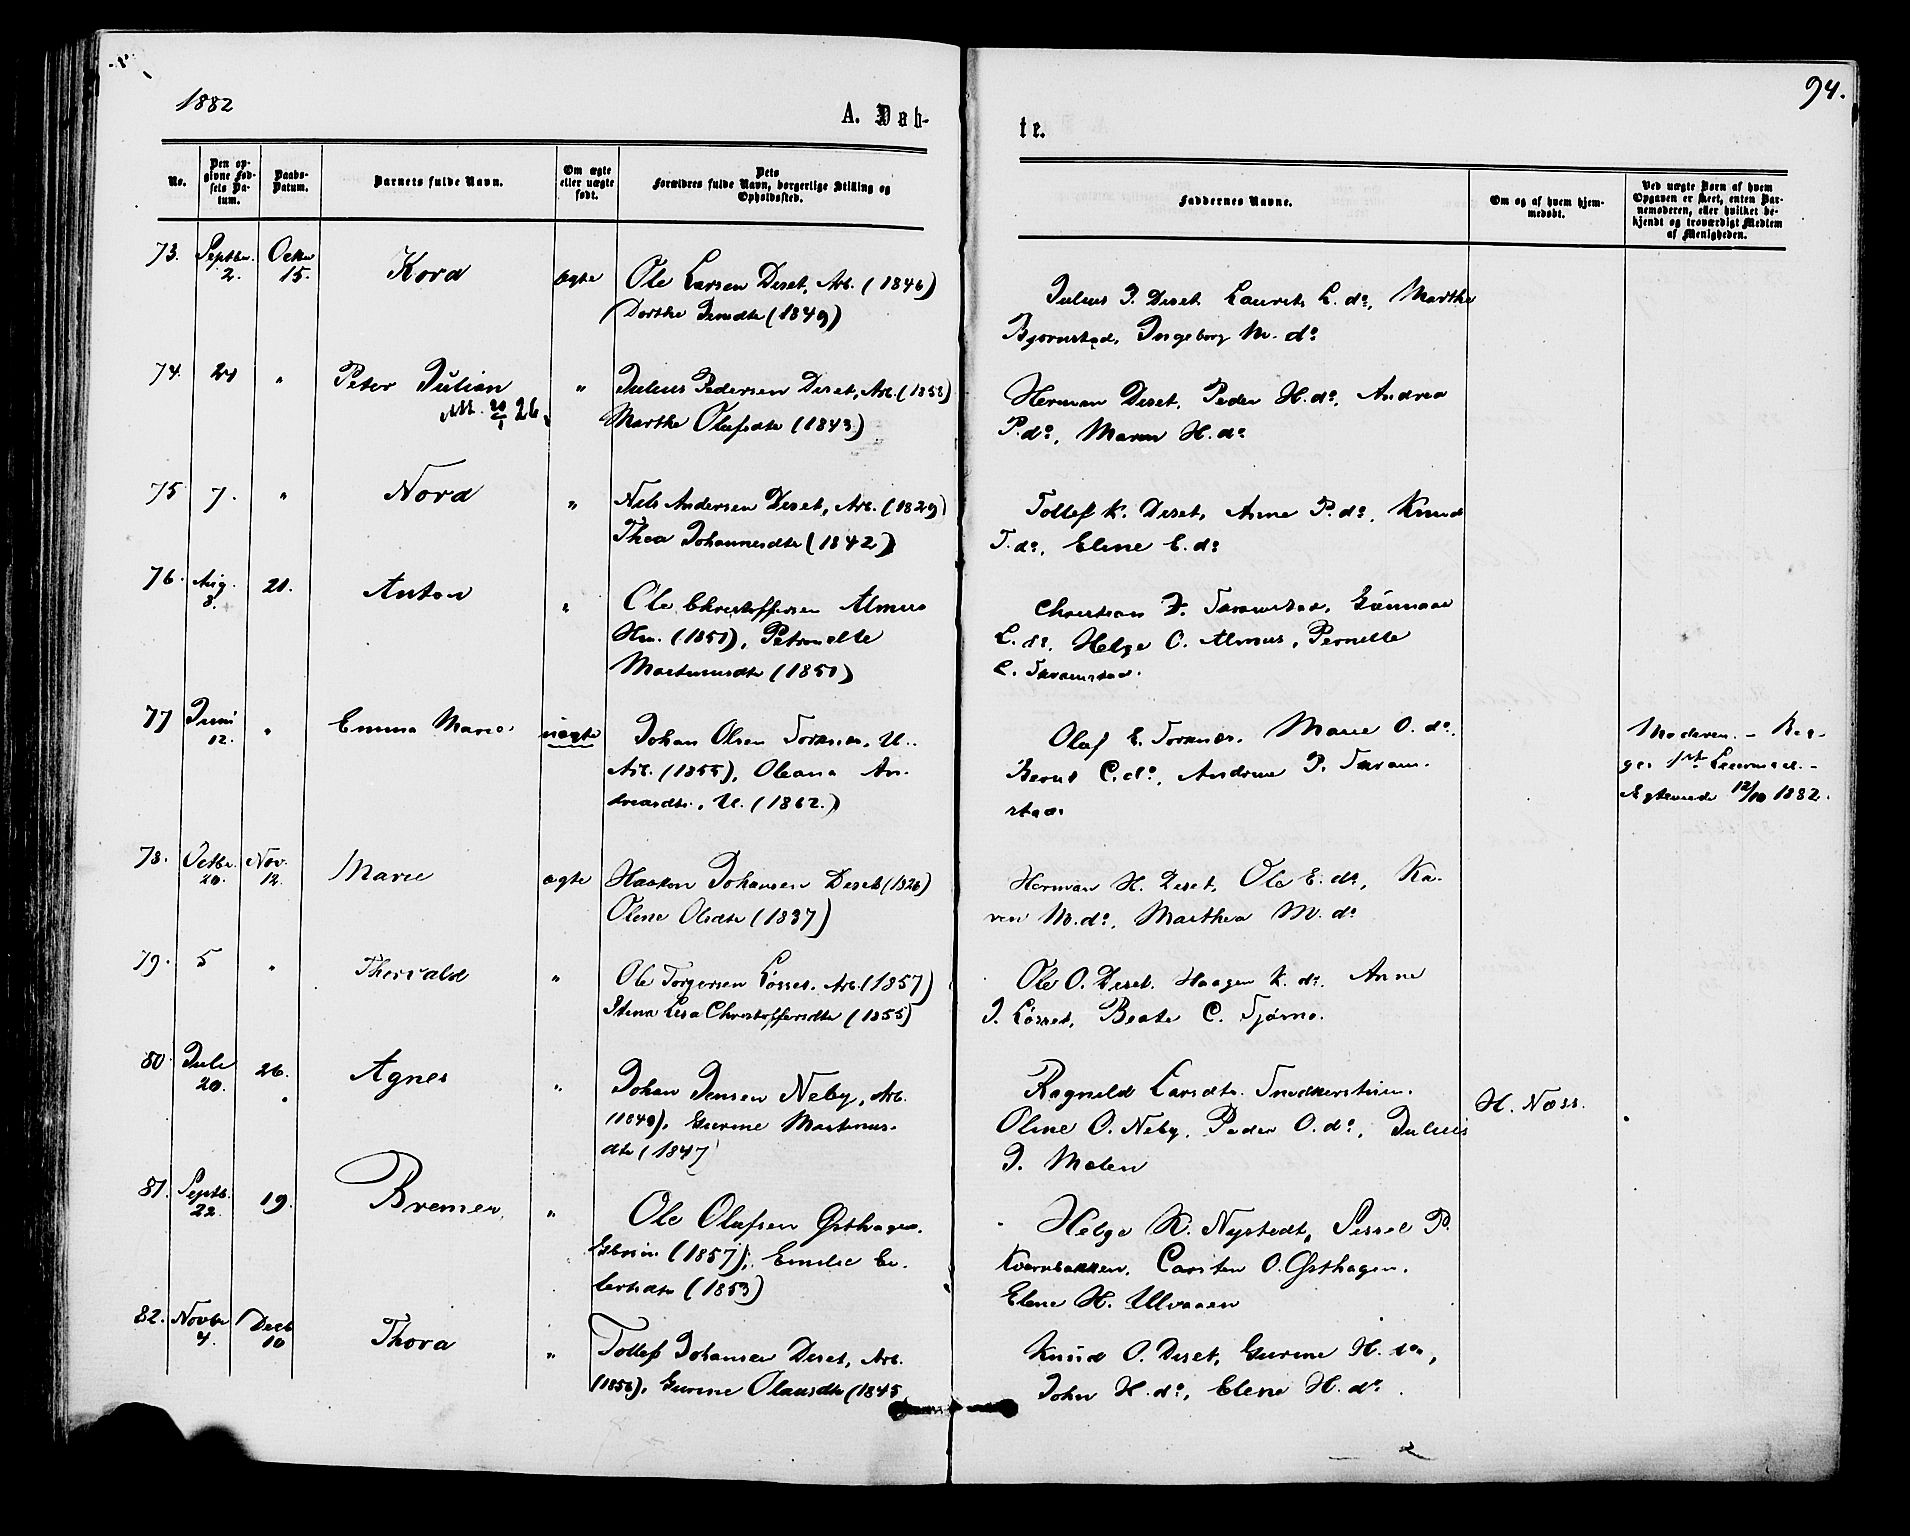 1882
94.
A. Døb-
te.
No.
Den op-
givne Fød-
sels Da-
tum.
Daabs-
Datum.
Barnets fulde Navn.
Om ægte
eller uægte
født.
Dets
Forældres fulde Navn, borgerlige Stilling og
Opholdssted.
Faddernes Navne.
Om og af hvem hjem-
medøbt.
Ved uægte Børn af hvem
Opgaven er skeet, enten Bar-
nemoderen, eller hvilket be-
kjendt og troværdigt Medlem
af Menigheden.
73. Septbr. 2. Octbr 15. Kord ægte Ole Larsen Deset, Arb. (1846)
Dorthe (1849)
Julius P. Deset, Laurits L. do, Marthe
Bjørnstad, Ingeborg M. do
74. 21 " Peter Julian " Julius Pedersen Deset, Arb. (1858)
Att. 20/1 26.
Marthe Olafsdtr (1843)
Herman Deset, Peder H. do, Andrea
P. do, Maren H. do
75 7. " Nord " Nils Andersen Deset, Arb. (1829)
Thea Johannesdtr (1842)
Tollef K. Deset, Anne P. do, Knud
T. do, Eline E. do
76. Aug. 8. 21. Anton " Ole Christoffersen Almus
Hm. (1850), Petronelle
Martinusdtr (1850)
Christian Taranstad, Gunnar
L. do, Helge O. Almus, Pernelle
C. Taranstad.
77 Juni 12. " Emma Marie uægte Johan Olsen Torknæs, U.
Arb. (1855), Oleana An-
dreasdtr, U. (1862.)
Olaf E. Torknæs, Marie O. do,
Bernt C. do, Andrine P. Taran-
stad
Moderen. - Beg-
ges 1ste Leiermaal. -
Egteviede 12/10 1882.
78. Octbr. 20. Nov. 12. Marie ægte Haakon Johansen Deset (1826)
Olene Olsdtr (1837)
Herman H. Deset, Ole E. do, Ka-
ren M. do, Marthea M. do
79. 5 " Thorvald " Ole Torgersen Løsset, Arb. (1857)
Stina Lisa Christoffersdtr (1855)
Ole O. Deset, Haagen K. do, Anne
J. Løsset, Beate C. Tjørna.
80 Juli 20. 26. Agnes " Johan Jensen Neby, Arb.
(1840), Gurine Martinus-
dtr (1847)
Ragnild Larsdtr. Snedkerstuen.
Oline O. Neby, Peder O. do, Julius
J. Moten
H. Næss.
81. Septb. 22. 19. Bremer " Ole Olafsen Østhagen.
Gbrsøn. (1857), Emilie En-
bertsdtr (1853)
Helge K. Nystedt, Sissel P.
Kvernbakken, Carsten O. Østhagen,
Elene H. Ulvaaen
82. Novbr 4. Decb 10 Thora " Tollef Johansen Deset, Arb.
(1856), Gurine Olausdtr (1845
Knud O. Deset, Gurine H. do,
John H. do, Elene H. do